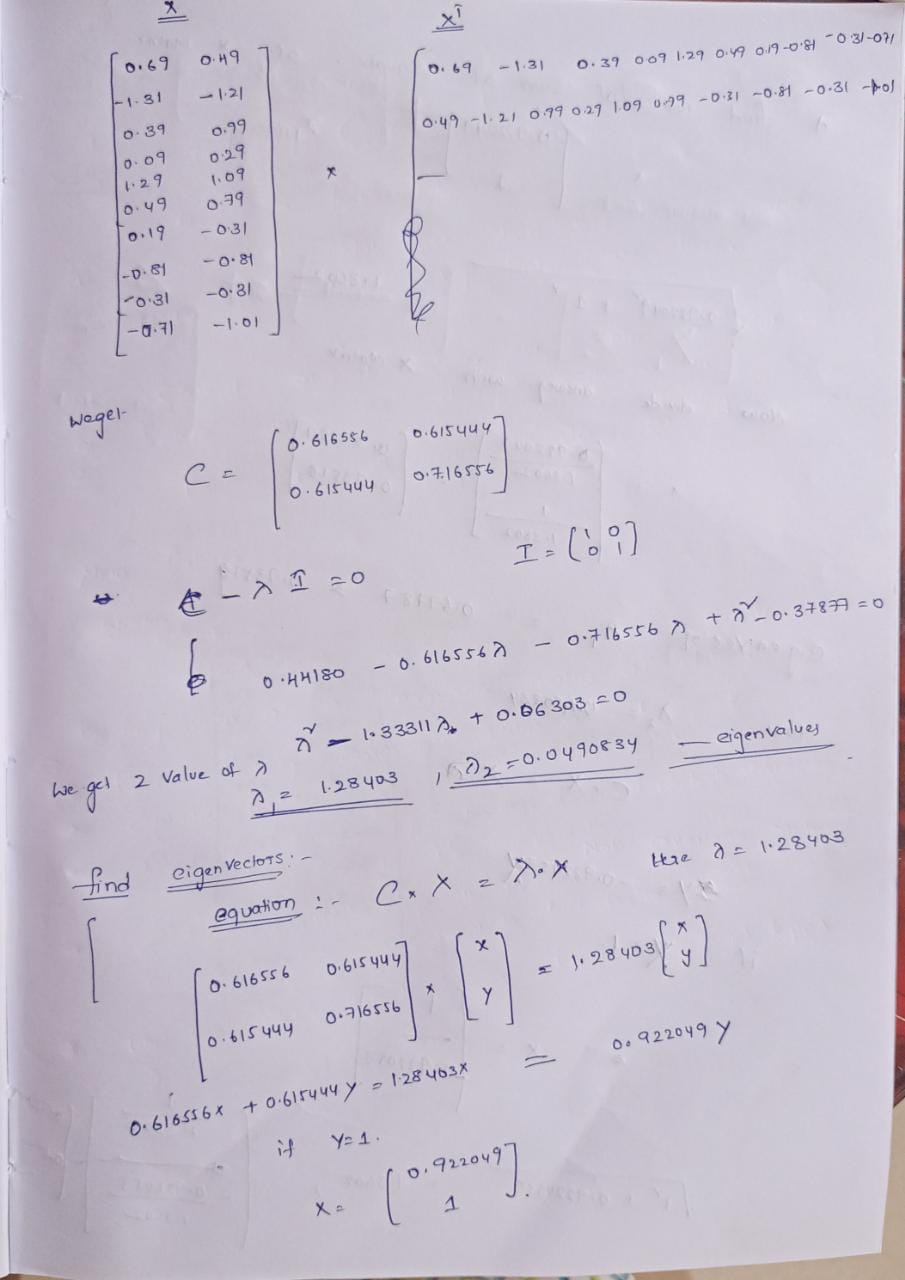 X Xᵀ
0.69 0.49
-1.31 -1.21
0.39 0.99
0.09 0.29
1.29 1.09
0.49 0.79
0.19 -0.31
-0.81 -0.81
-0.31 -0.31
-0.71 -1.01
×
0.69 -1.31 0.39 0.09 1.29 0.49 0.19 -0.81 -0.31 -0.71
0.49 -1.21 0.99 0.29 1.09 0.79 -0.31 -0.81 -0.31 -1.01
We get
C = [0.616556 0.615444
0.615444 0.716556]
I = [1 0
0 1]
C - λ I = 0
0.44180 - 0.616556 λ - 0.716556 λ + λ² - 0.37877 = 0
λ² - 1.33311 λ + 0.06303 = 0
We get 2 value of λ
λ₁ = 1.28403 , λ₂ = 0.0490834 — eigenvalues
find eigenvectors :-
equation :- C × X = λ.X Here λ = 1.28403
[0.616556 0.615444
0.615444 0.716556] × [x
y] = 1.28403 [x
y]
0.616556x + 0.615444 y = 1.28403x = 0.922049 y
if y=1.
x = [0.922049
1].